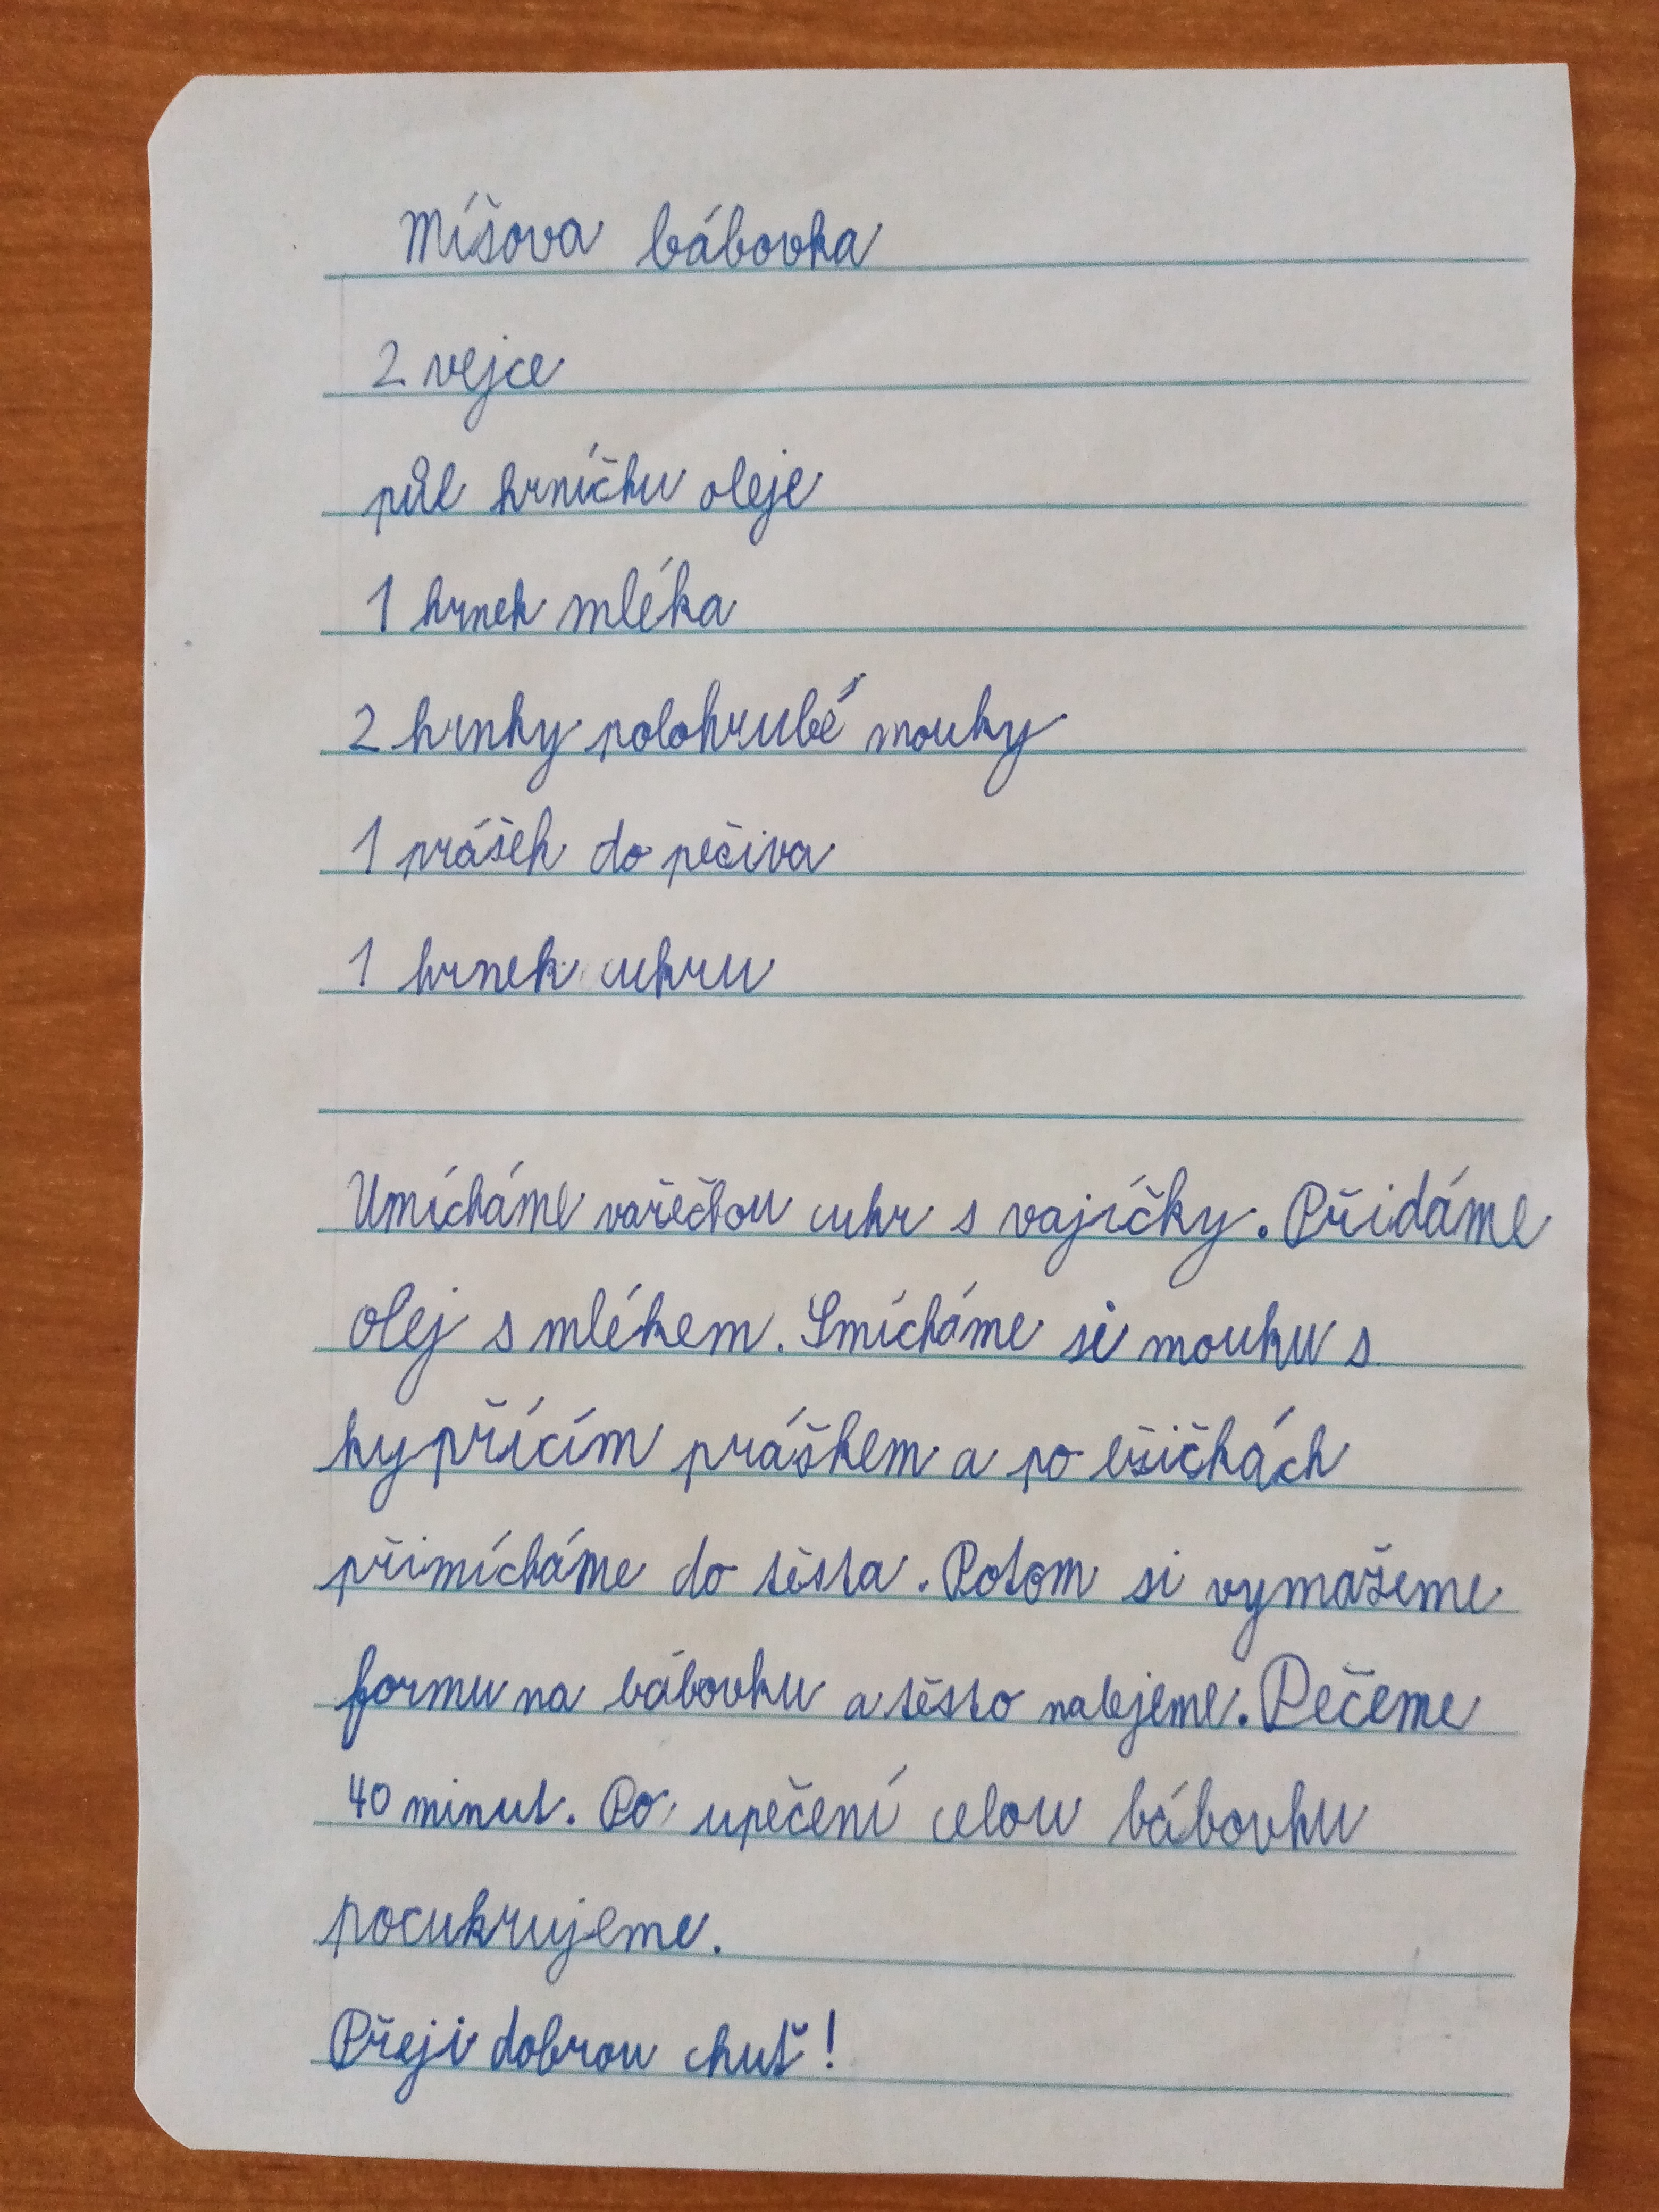 Míšova bábovka
2 vejce
půl hrníčku oleje
1 hrnek mléka
2 hrnky polohrubé mouky
1 prášek do pečiva
1 hrnek cukru
Umícháme vařečkou cukr s vajíčky. Přidáme
olej s mlékem. Smícháme si mouku s
kypřícím práškem a po lžičkách
přimícháme do těsta. Potom si vymažeme
formu na bábovku a těsto nalejeme. Pečeme
40 minut. Po upečení celou bábovku
pocukrujeme.
Přeji dobrou chuť!